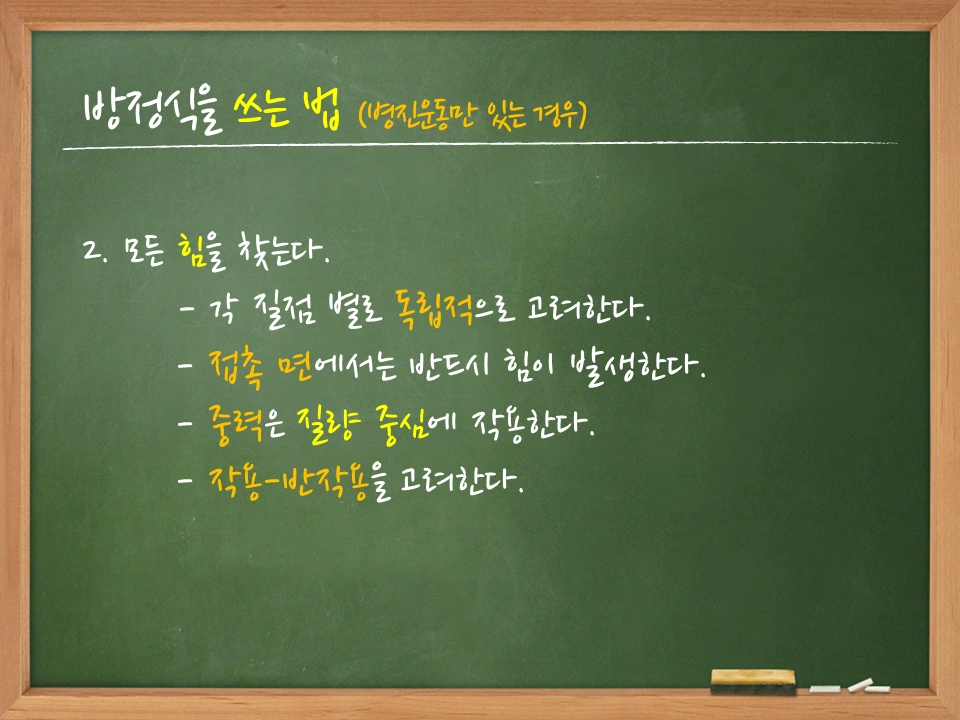 방정식을 쓰는 법 (병진운동만 있는 경우)
2. 모든 힘을 찾는다.
- 각 질점 별로 독립적으로 고려한다.
- 접촉 면에서는 반드시 힘이 발생한다.
- 중력은 질량 중심에 작용한다.
- 작용-반작용을 고려한다.